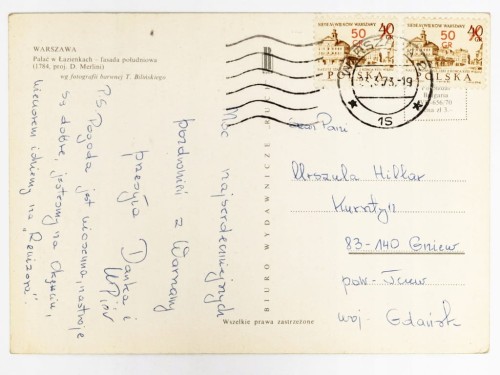 WARSZAWA
Pałac w Łazienkach – fasada południowa
(1784, proj. D. Merlini)
wg fotografii barwnej T. Bilińskiego
Moc najserdeczniejszych
pozdrowień z Warszawy
przesyła Danka i
PS Pogoda jest wiosenna, nastroje
są dobre, jesteśmy na Okęciu,
wieczorem idziemy na "Rewizora".
BIURO WYDAWNICZE RUCH
Wszelkie prawa zastrzeżone
SIEDEM WIEKÓW WARSZAWY
40 GR
50
GR
POLSKA
SIEDEM WIEKÓW WARSZAWY
40 GR
50
GR
POLSKA
WARSZAWA
73.-19
15
Pani
Urszula
83-140 Gniew
pow. Tczew
woj. Gdańsk